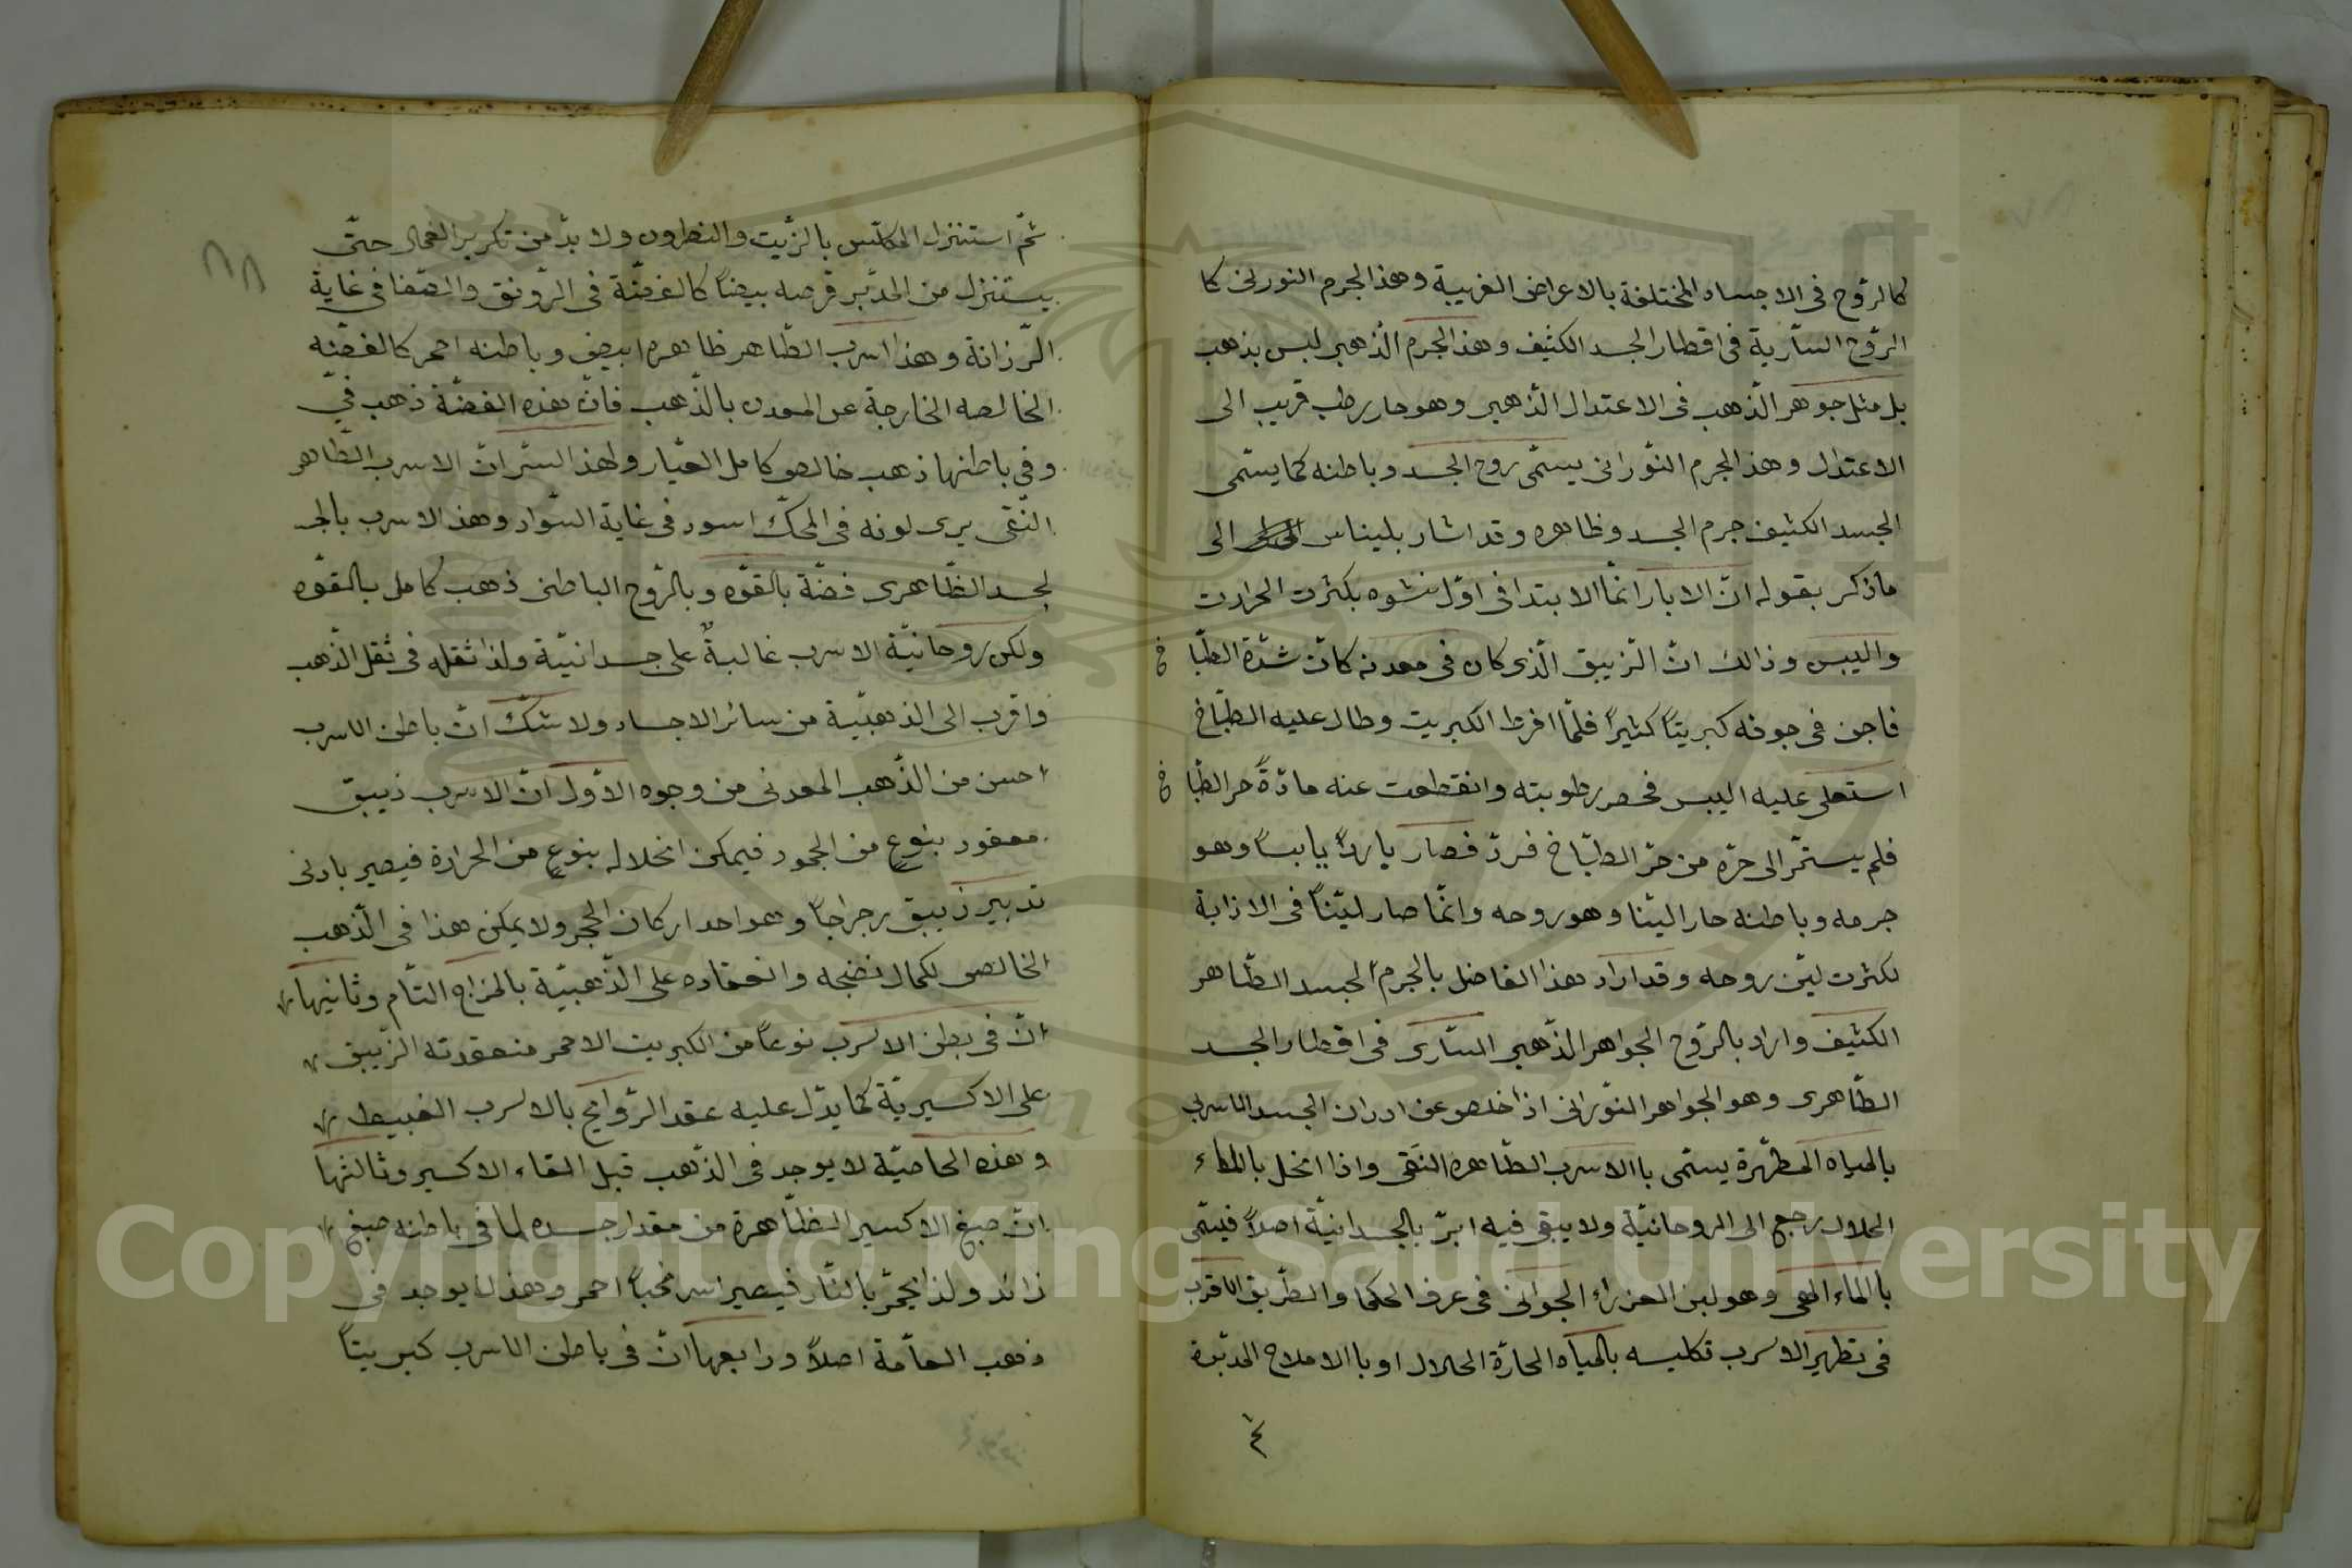 كالروح فى الاجساد المختلفة بالاعراض الغريبة وهذ الجرم النورنى كا
الرّوح السّارية فى اقطار الجسد الكثيف وهذ الجرم الذّهبى ليس بذهب
بل مثل جوهر الذّهب فى الاعتدال الذّهبى وهو حار رطب قريب الى
الاعتدال وهذ الجرم النّورانى يسمّى روح الجسد وباطنه كما يسمّى
الجسد الكثيف جرم الجسد وظاهره وقد اشار بليناس الى
ماذكر بقوله انّ الابار انّما الابتدا فى اوّل نشوه بكثرت الحرارت
واليبس وذالك انّ الزّيبق الّذى كان فى معدنه كانّ شدّة الطبّا خ
فاجن فى جوفه كبريتاً كثيراً فلمّا افرط الكبريت وطال عليه الطبّاخ
استعلى عليه اليبس فحصر رطوبته وانقطعت عنه مادّةً حر الطبّا خ
فلم يستمّر الى حرّه من حرّ الطبّاخ فردّ فصار يارداً يابساً وهو
جرمه وباطنه حار اليّنا وهو روحه وانّما صار ليّناً فى الاذابة
لكثرت ليّن روحه وقد اراد هذا الفاضل بالجرم الجسد الظّاهر
الكثيف واراد بالرّوح الجواهر الذّهبى السّارى فى اقطار الجسد
الظّاهرى وهو الجواهر النّورانى اذا خلص عن ادران الجسد الاسربى
بالمياه المطهّرة يسمّى باالاسرب الطّاهره النّقى واذا انحل بالماء
الحلال رجع الى الروحانيّة ولا يبقى فيه ابرّ بالجسدانيّة اصلاً فيسمّى
باالماء الهى وهو لبن العزراء الجوانى فى عرف الحكما والطّريق الاقرب
فى تطهير الاسرب تكليسه بالمياه الحارّة الحلال او باالاملاح المدبّرة
ثمّ
٨٨
ثمّ استنزل المكلّس بالزّيت والنطرون ولا بدّ من تكرير العمال حتّى
يستنزل من المدبّر قرصه بيضاً كالفضّة فى الرّونق والصّفا فى غاية
الرّزانة وهذ اسرب الطّاهر ظاهره ابيض وباطنه احمر كالفضّه
الخالصه الخارجة عن المعدن بالذّهب فانّ هذه الفضّة ذهب فىّ
وفى باطنها ذهب خالص كامل العيّار ولهذ السّر انّ الاسرب الطّاهر
النّقى يرى لونه فى المحكّ اسود فى غاية السّواد وهذ الاسرب بالجـ
لجسد الظّاهرى فضّة بالقوّه وبالرّوح الباطنى ذهب كامل بالقوّه
ولكن روحانيّة الاسرب غالبةٌ على جسدانيّة ولذا ثقله فى ثقل الذّهب
واقرب الى الذهبيّة من سائر الاجساد ولا شكّ انّ باطن الاسرب
احسن من الذّهب المعدنى من وجوه الاوّل انّ الاسرب ذيبق
معقود بنوعٍ من الجمود فيمكن انحلاله بنوعٍ من الحرارة فيصير بادنى
تدبير زيبق رجراجاً وهو احد اركان الحجر ولا يمكن هذا فى الذّهب
الخالص لكمال نضجه وانعقاده على الذّهبيّة بالمزاج التّام وثانيها
انّ فى بطن الاسرب نوعاً من الكبريت الاحمر منعقدته الزّيبق
على الاكسيريّة كما يدّل عليه عقد الرّوايح بالاسرب الغبيط
وهذه الخاصيّة لا يوجد فى الذّهب قبل القاء الاكسير وثالثها
انّ صبغ الاكسير الظّاهرة من مقدار جسده لما فى باطنه صبغ
زائد ولذا يحمّر بالنّار فيصير اسرنجاً احمر وهذ لا يوجد فى
ذهب العامّة اصلاً ورابعها انّ فى باطن الاسرب كبريتاً
Copyright © King Saud University
1957